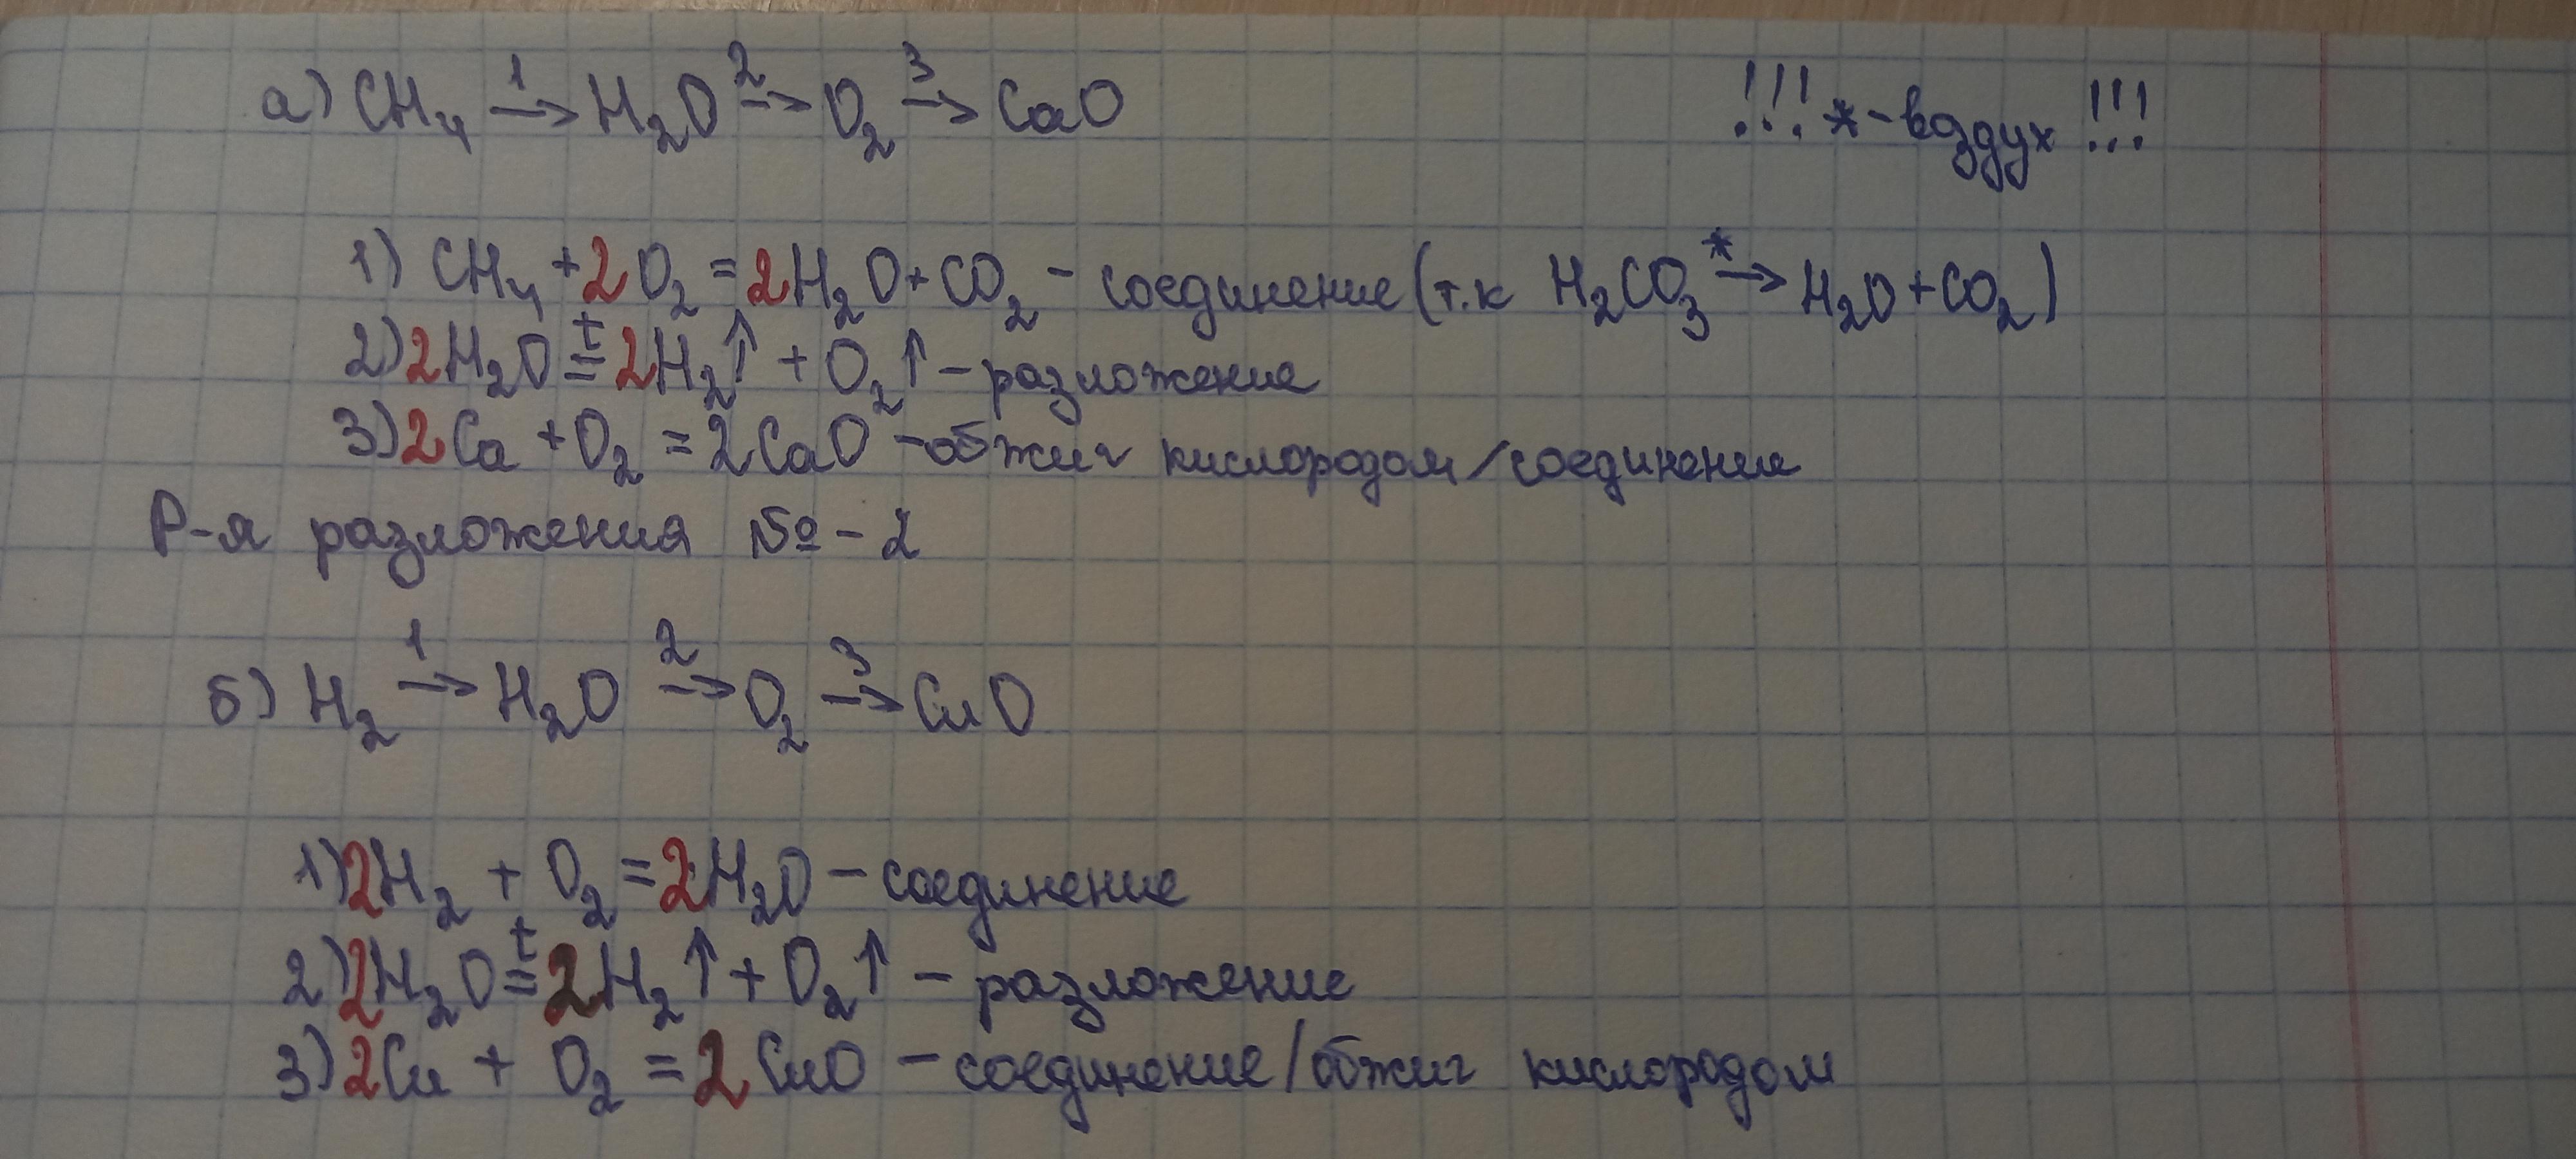 а) CH₄ →¹ H₂O →² O₂ →³ CaO
!!! * - воздух !!!
1) CH₄ + 2O₂ = 2H₂O + CO₂ - соединение (т.к H₂CO₃ →* H₂O + CO₂)
2) 2H₂O =ᵗ 2H₂↑ + O₂↑ - разложение
3) 2Ca + O₂ = 2CaO - обжиг кислородом/соединение
Р-я разложения № - 2
б) H₂ →¹ H₂O →² O₂ →³ CuO
1) 2H₂ + O₂ = 2H₂O - соединение
2) 2H₂O =ᵗ 2H₂↑ + O₂↑ - разложение
3) 2Cu + O₂ = 2CuO - соединение/обжиг кислородом